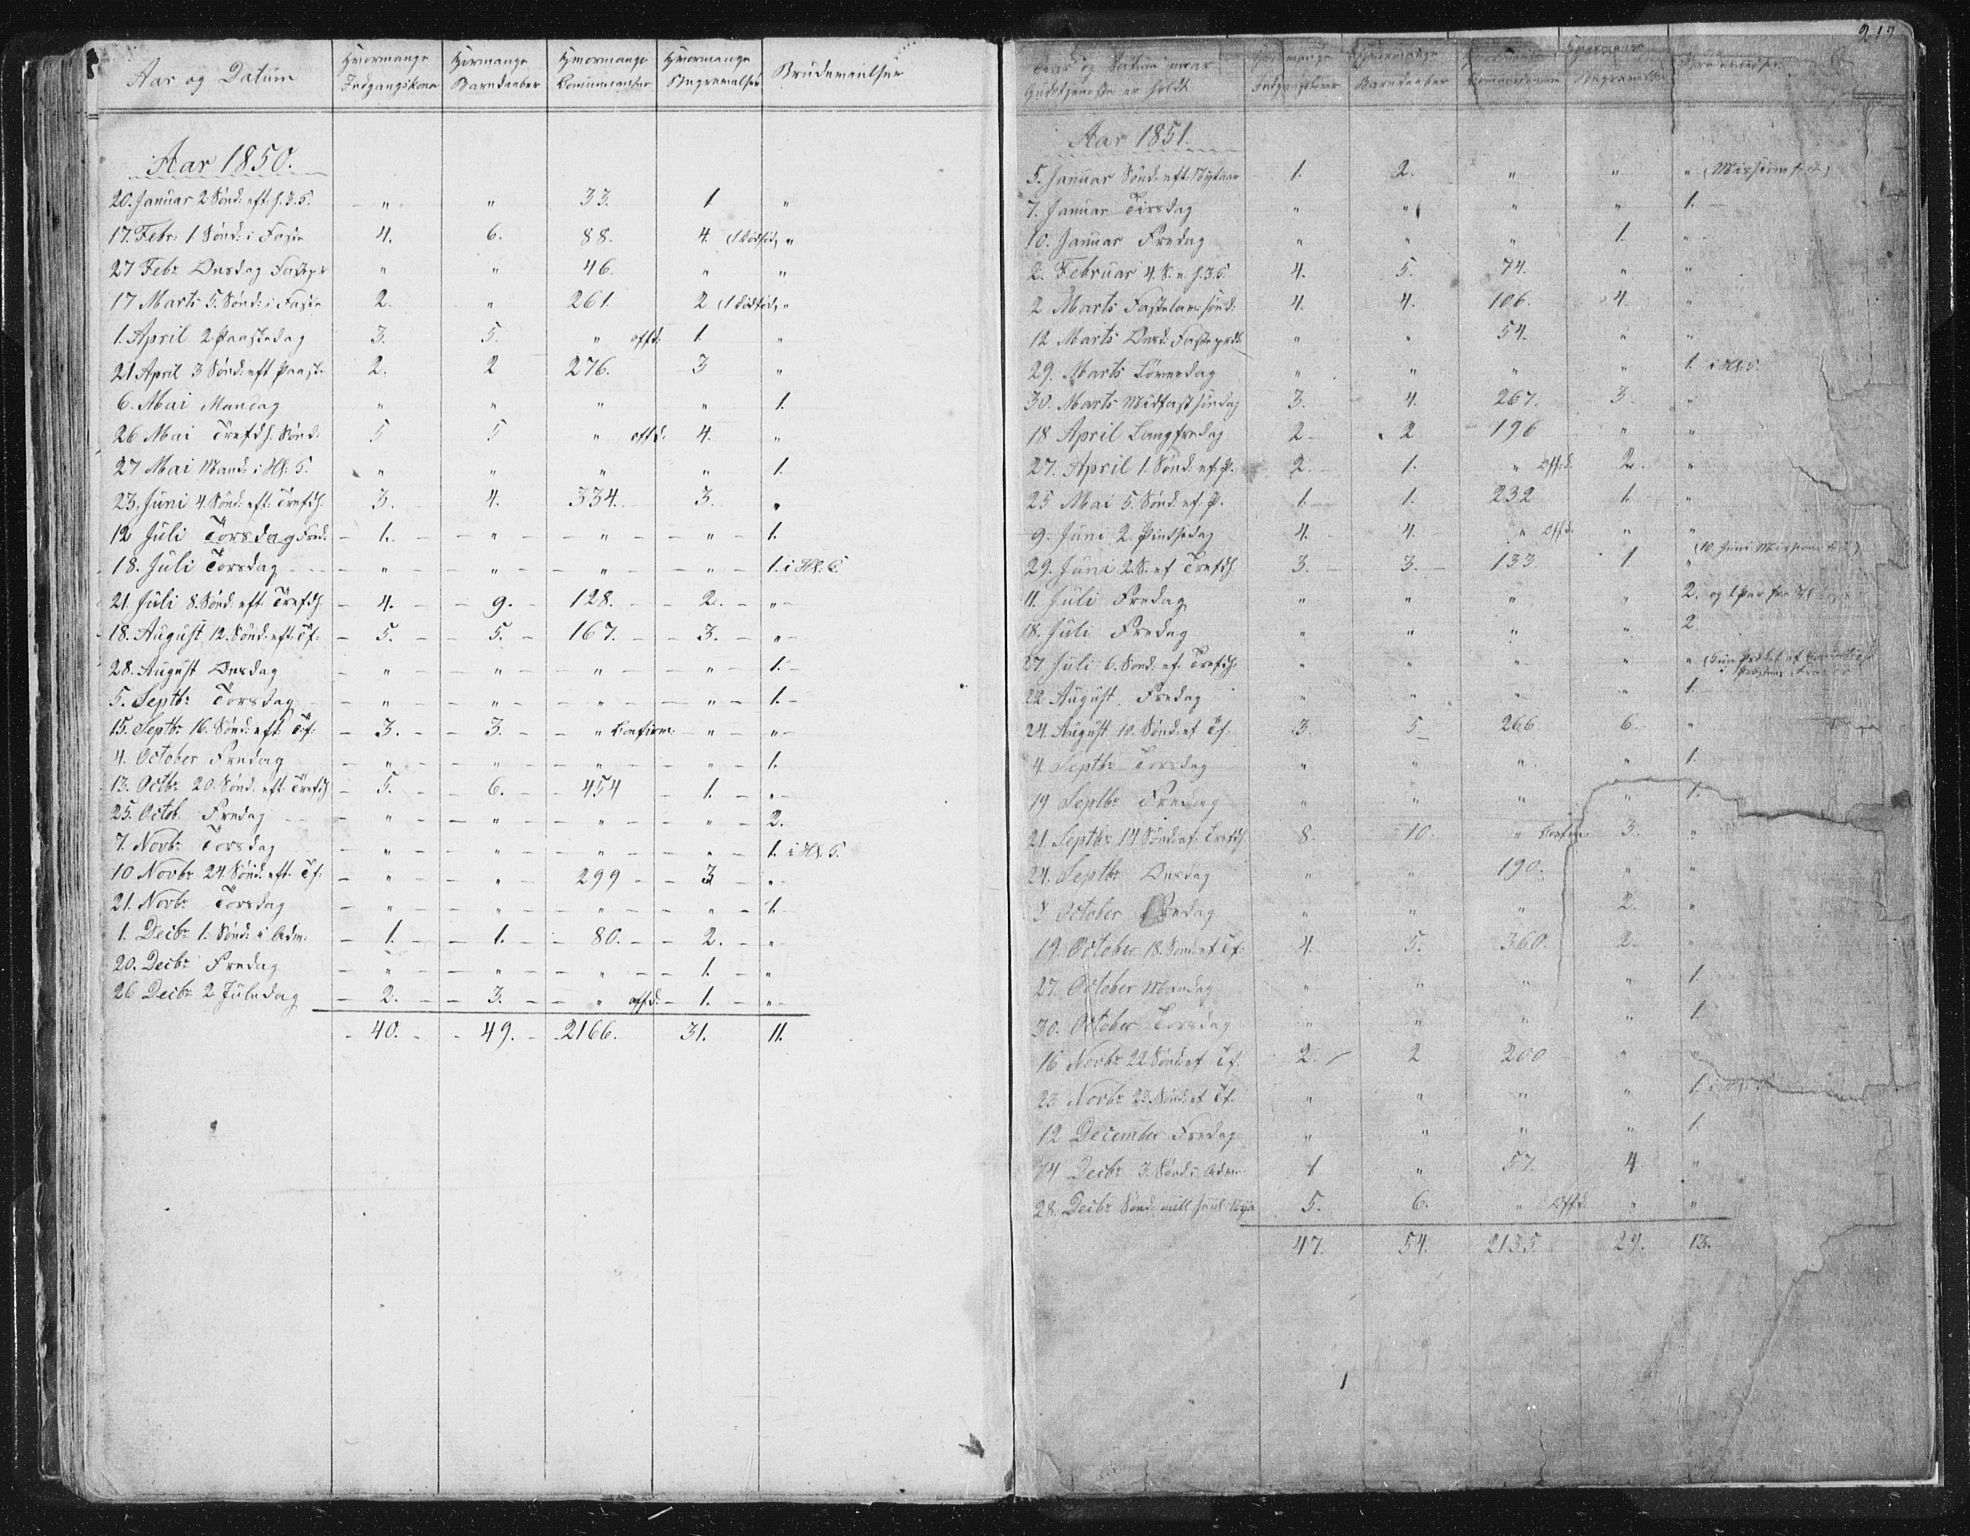 Aar og Datum | Hvormange Indgangskoner | Hvormange Barndaaber | Hvormange Communicanter | Hvormange Begravelser | Brudevielser
Aar 1850.
20. Januar 2 Sønd: eft: h.3.K. | " | " | 33. | 1 | "
17. Febr: 1. Sønd: i Faste | 4. | 6. | 88. | 4. (1 dødfød) | "
27 Febr Onsdag Fastepr | " | " | 46. | " | "
17 Marts 5. Sønd: i Faste | 2. | " | 261. | 2 (1 dødfød) | "
1. April 2 Paaskedag | 3. | 5. | " offd: | 1. | "
21 April 3 Sønd: eft Paaske | 2. | 2 | 276. | 3 | "
6. Mai Mandag | " | " | " | " | 1.
26 Mai Trefdh. Sønd: | 5 | 5 | " offd: | 4. | "
27 Mai Mand: i Hk. S. | " | " | " | " | 1.
23. Juni 4. Sønd: eft: Trefdh. | 3. | 4. | 334. | 3. | "
12 Juli Torsdag Fred: | 1. | " | " | " | 1.
18. Juli Torsdag | " | " | " | " | 1. i Hk. S.
21. Juli 8. Sønd: eft: Trefdh. | 4. | 9. | 128. | 2. | "
18. August 12. Sønd: eft: Tf: | 5. | 5. | 167. | 3. | "
28. August Onsdag | " | " | " | " | 1.
5. Septbr Torsdag | " | " | " | " | 1.
15. Septbr 16. Sønd: eft: Tf: | 3. | 3. | " Confirm: | " | "
4. October Fredag | " | " | " | " | 1.
13. Octbr 20. Sønd. eft: Trefdh | 5. | 6. | 454 | 1. | "
25. Octob. Fredag | " | " | " | " | 2.
7. Novbr Torsdag | " | " | " | " | 1. i Hk. S.
10 Novbr 24. Sønd. eft. Tf: | " | " | 299 | 3 | "
21. Novbr Torsdag | " | " | " | " | 1.
1. Decbr 1. Sønd: i Adv. | 1. | 1. | 80. | 2. | "
20. Decbr Fredag | " | " | " | 1. | "
26 Decbr 2. Juledag | 2. | 3. | " offd: | 1. | "
40. | 49. | 2166. | 31. | 11.
Aar og Datum naar Gudstjeneste er holdt | Hvormange Indgangskoner | Hvormange Barndaaber | Hvormange Communicanter | Hvormange Begravelser | Brudevielser
Aar 1851.
5. Januar Sønd. eft: Nytaar | 1. | 2. | " | " | "
7. Januar Tirsdag | " | " | " | " | 1.
10. Januar Fredag | " | " | " | 1. | "
2. Februar 4. S. e. h.3.K. | 4. | 5. | 74. | " | "
2 Marts Fastelavns sønd: | 4. | 4. | 106. | 4. | "
12 Marts Onsd: Fasteprdk | " | " | 54. | " | "
29. Marts Løverdag | " | " | " | " | 1. i Hk. S.
30. Marts Midfast søndag | 3. | 4. | 267. | 3. | "
18 April Langfredag | 2 | 2 | 196 | " | "
27. April 1. Sønd. ef. P. | 2. | 1. | " Offd. | 2. | "
25 Mai 5. Sønd. ef. P. | 1. | 1. | 232 | 1. | "
9. Juni 2. Pintsedag | 4. | 4. | " Offd. | " | "
(10. Juni Missions
29. Juni 2. S. ef Trefdh | 3. | 3. | 133 | 1 | "
11. Juli Fredag | " | " | " | " | 2. og 1 Par fra Hk
18. Juli Fredag | " | " | " | " | 2.
27 Juli 6. Sønd. ef. Trefdh. | " | " | " | " | "
22 August. Fredag | " | " | " | " | 1.
24. August 10. Sønd. ef Tf. | 3. | 5 | 266. | 6 | "
4 Septbr Torsdag | " | " | " | " | 1.
19 Septbr Fredag | " | " | " | " | 1.
21. Septbr 14 Sønd. ef. Trefdh | 8. | 10. | " Confirm. | 3. | "
24. Septbr Onsdag | " | " | 190. | " | "
3 October Fredag | " | " | " | 2. | "
19. October 18. Sønd. ef Tf: | 4. | 5. | 360. | 2. | "
27. October Mandag | " | " | " | " | 1.
30. October Torsdag | " | " | " | " | 1.
16 Novbr 22 Sønd. ef Tf. | 2. | 2 | 200 | " | "
23 Novbr 23. Sønd. ef Tf. | " | " | " | " | 1. i Hk. S.
12 December Fredag | " | " | " | " | 1.
14 Decbr 3. Sønd i Adv. | 1. | " | 57. | 4. | "
28. Decbr Sønd. mell Juul Nyå | 5. | 6. | " Offd. | " | "
47. | 54. | 2135. | 29. | 13.